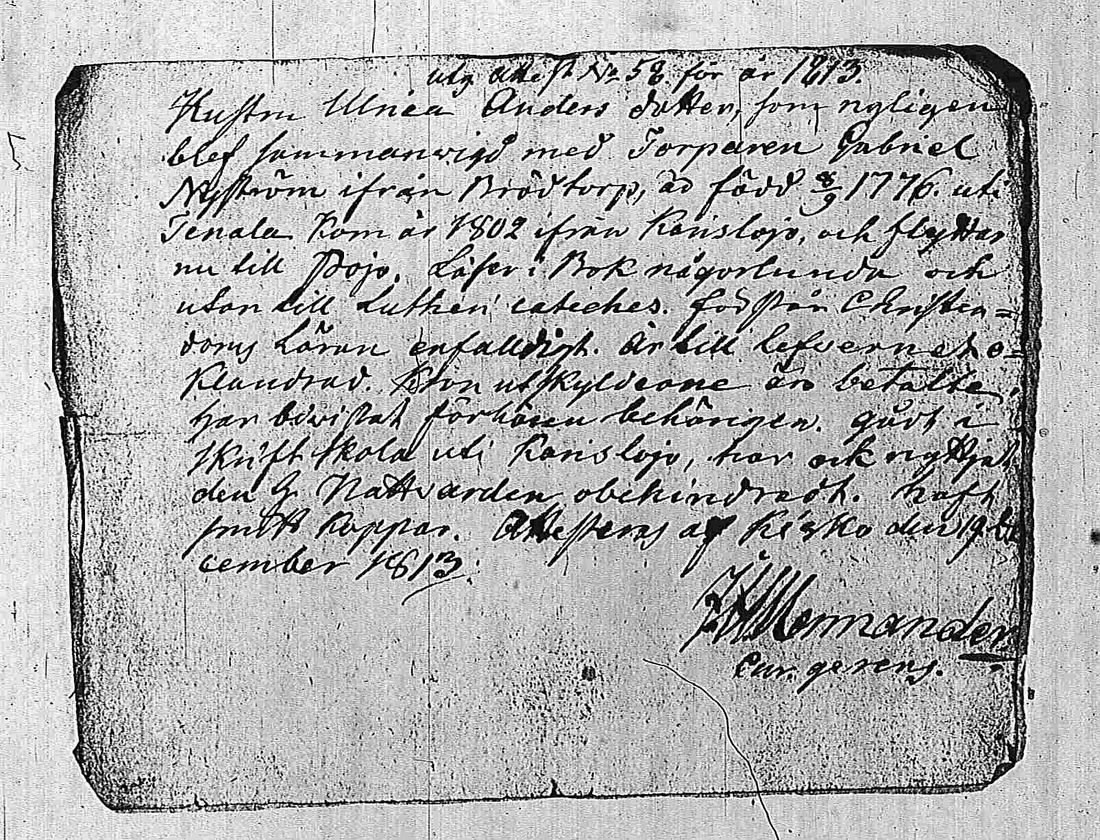 utg Attest No 58 för år 1813
Hustru Ulrica Anders dotter, som nyligen
blef sammanwigd med Torparen Gabriel
Nyström ifrån Brödtorp, är född 8/9 1776. uti
Tenala Kom år 1802 ifrån Karislojo, och flyttar
nu till Pojo. Läser i Bok någorlunda och
utan till Lutheri cateches. förstår Christen=
doms Läran enfalldigt. Är till lefwernet o=
klandrad. Kron utskylderne äro betalte,
har bewistat förhören behörigen. gådt i
Skriftskola uti Karislojo, har ock nyttjat
den H. Nattvarden obehindradt. haft
Koppor. Attesteras af Kisko den 19 De
cember 1813.
Mormander
Cur. gerens.